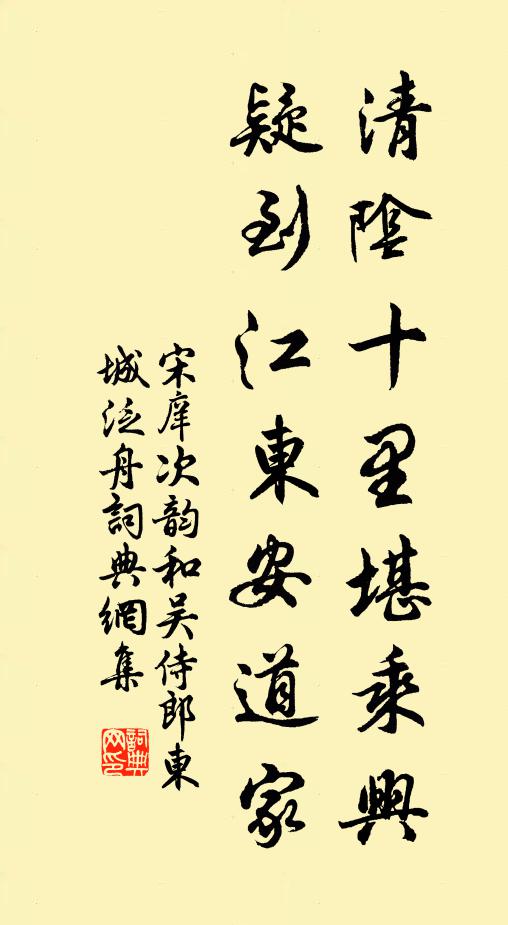 清陰十里堪乘興
疑到江東安道家
宋庠次韵和吴侍郎東
城泛舟詞典網集
詞典网印